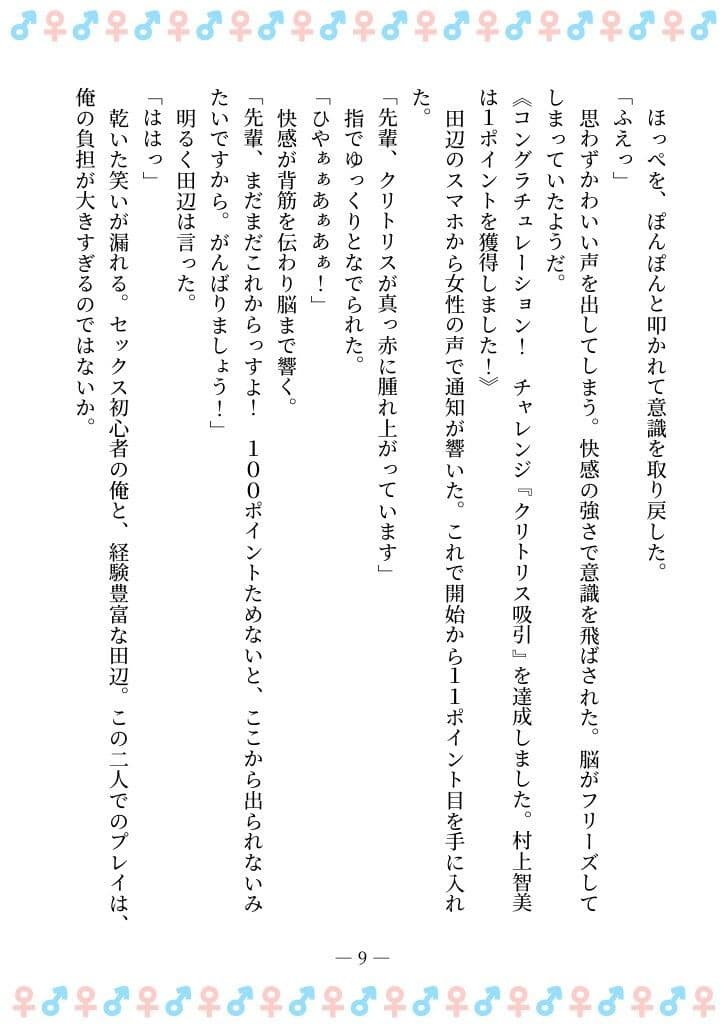 ほっぺを、ぽんぽんと叩かれて意識を取り戻した。
「ふえっ」
思わずかわいい声を出してしまう。快感の強さで意識を飛ばされた。脳がフリーズして
しまっていたようだ。
《コングラチュレーション！　チャレンジ『クリトリス吸引』を達成しました。村上智美
は１ポイントを獲得しました！》
田辺のスマホから女性の声で通知が響いた。これで開始から１１ポイント目を手に入れ
た。
「先輩、クリトリスが真っ赤に腫れ上がっています」
指でゆっくりとなでられた。
「ひやぁぁあぁあぁ！」
快感が背筋を伝わり脳まで響く。
「先輩、まだまだこれからっすよ！　１００ポイントためないと、ここから出られないみ
たいですから。がんばりましょう！」
明るく田辺は言った。
「ははっ」
乾いた笑いが漏れる。セックス初心者の俺と、経験豊富な田辺。この二人でのプレイは、
俺の負担が大きすぎるのではないか。
― 9 ―